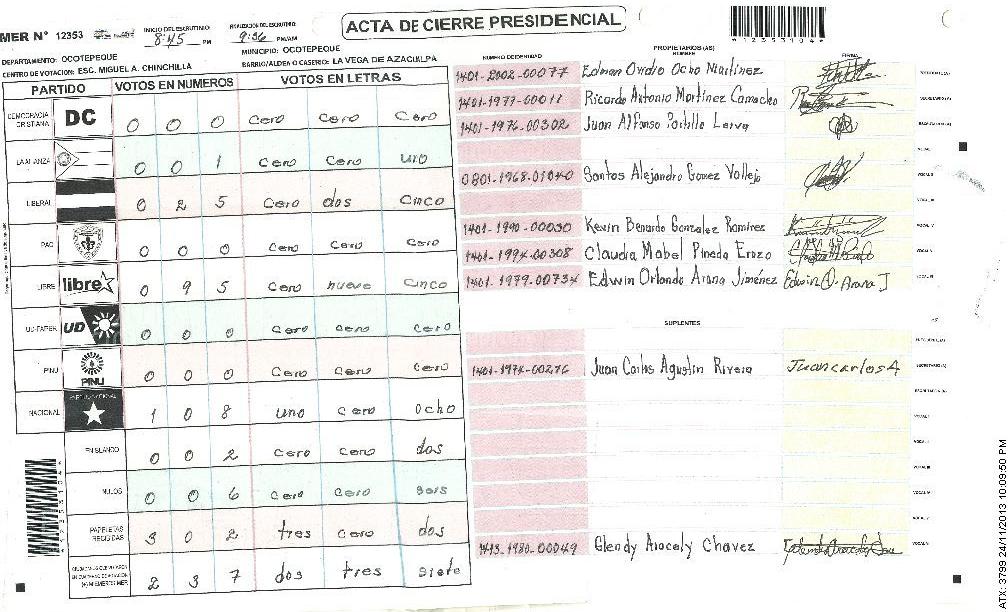 ACTA DE CIERRE PRESIDENCIAL
MER N° 12353
INICIO DEL ESCRUTINIO 8:45 PM
FINALIZACION DEL ESCRUTINIO: 9:56 PM/AM
*1235304*
DEPARTAMENTO: OCOTEPEQUE
MUNICIPIO: OCOTEPEQUE
CENTRO DE VOTACION: ESC. MIGUEL A. CHINCHILLA
BARRIO/ALDEA O CASERIO: LA VEGA DE AZACUALPA
PARTIDO VOTOS EN NUMEROS VOTOS EN LETRAS
DEMOCRACIA CRISTIANA DC 0 0 0 cero cero cero
LA ALIANZA 0 0 1 cero cero uno
LIBERAL 0 2 5 cero dos cinco
PAC 0 0 0 cero cero cero
LIBRE libre 0 9 5 cero nueve cinco
UD-FAPER UD 0 0 0 cero cero cero
PINU PINU 0 0 0 cero cero cero
NACIONAL 1 0 8 uno cero ocho
EN BLANCO 0 0 2 cero cero dos
NULOS 0 0 6 cero cero seis
PAPELETAS RECIBIDAS 3 0 2 tres cero dos
CIUDADANOS QUE VOTARON EN CUADERNO DE VOTACION (+) MIEMBROS MER 2 3 7 dos tres siete
PROPIETARIOS (AS)
NUMERO DE IDENTIDAD NOMBRE FIRMA
1401-2002-00077 Edman Ovidio Ocho Martinez PRESIDENTE (A)
1401-1977-00011 Ricardo Antonio Martinez Camacho SECRETARIO (A)
1401-1976-00302 Juan Alfonso Portillo Leiva ESCRUTADOR (A)
0801-1968-01040 Santos Alejandro Gomez Vallejo
1401-1990-00030 Kevin Benardo Gonzalez Ramirez
1401-1994-00308 Claudia Mabel Pineda Erazo
1401-1979-00734 Edwin Orlando Arana Jiménez Edwin O. Arana J
SUPLENTES
1401-1974-00276 Juan Carlos Agustin Rivera Juan carlos A SECRETARIO (A)
1413-1980-00049 Glendy Aracely Chavez
ATX: 3799 24/11/2013 10:09:50 PM